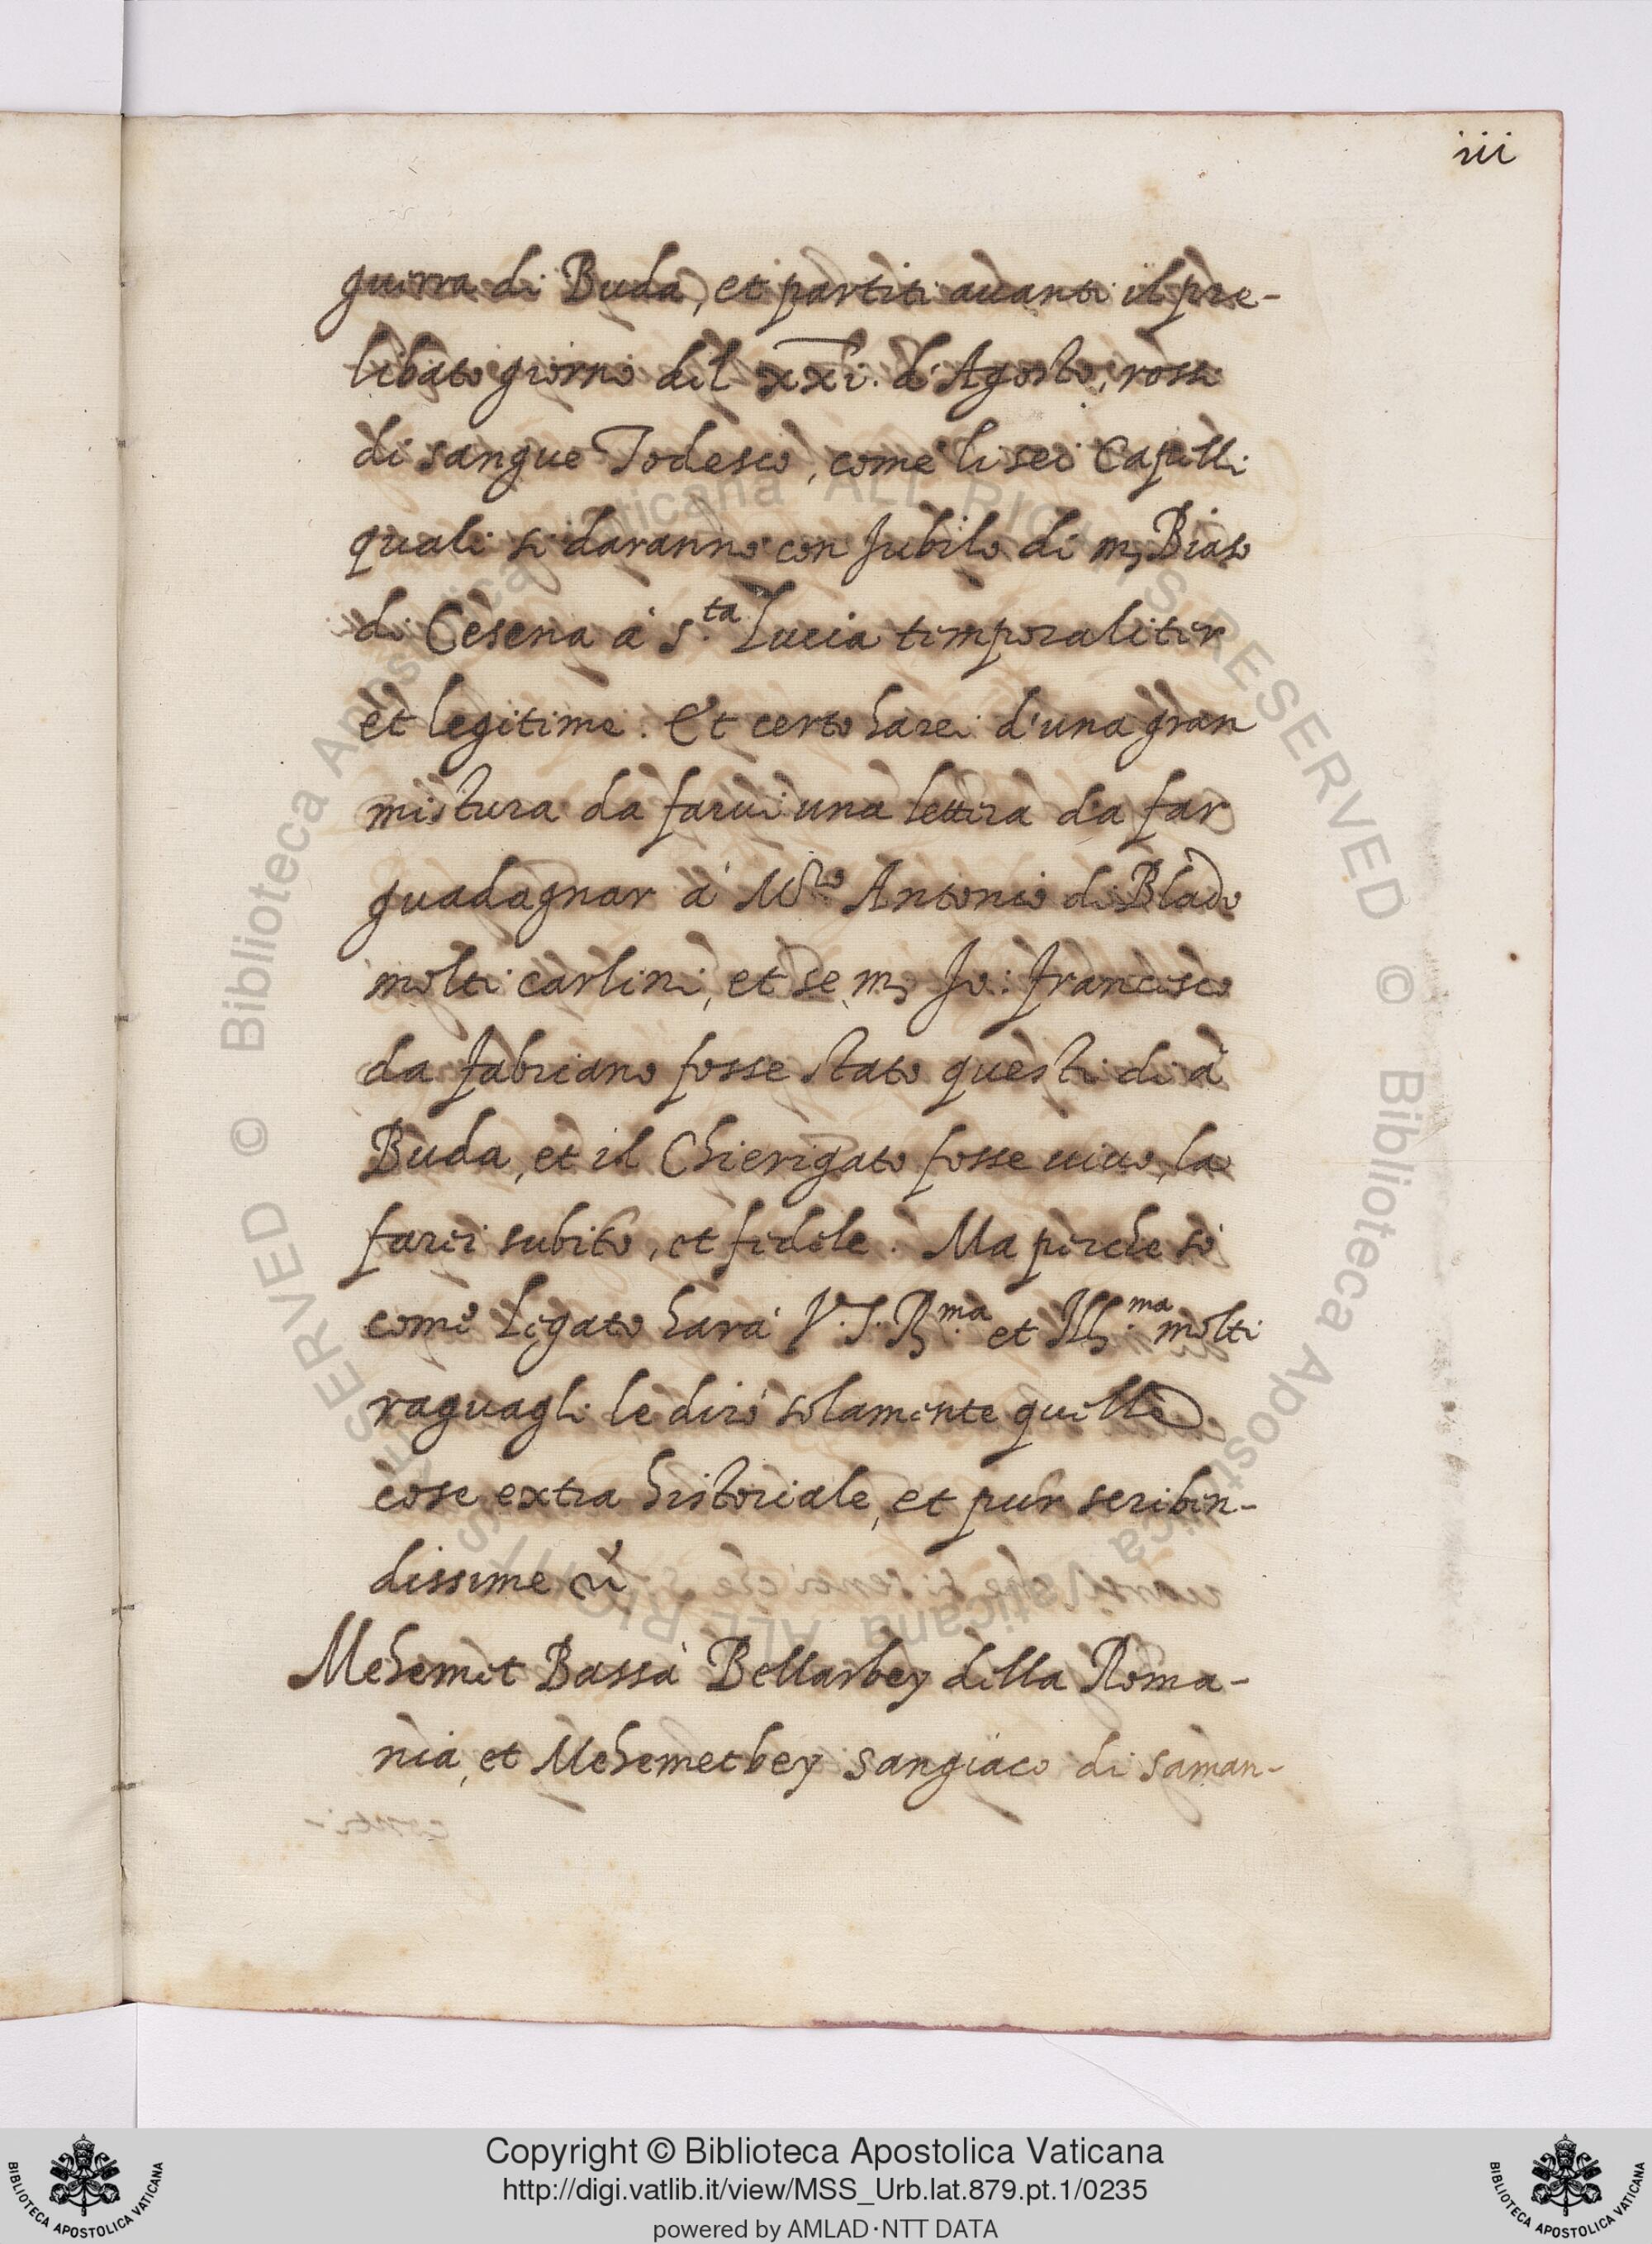 iii
guerra di Buda, et partiti auanti il pre-
libato giorno del xxi. d'Agosto, rossi
di sangue Todesco, come li sei Capelli
quali si daranno con Jubilo di m, Biaso
di Cesena à s.ta Lucia temporaliter
et legitime. Et certo harei d'una gran
mistura da farui una lettera da far
guadagnar à Antonio di Blado
molti carlini, et se m, Jo: francesco
da fabriano fosse stato questi di à
Buda, et il Chierigato fosse uiuo, la
farei subito, et fidele. Ma perche so
come Legato harà V.S.R.ma et Ill.ma molti
raguagli le dirò solamente quelle
cose extra historiale, et pur scriben-
dissime
Mehemet Bassà Bellarbey della Roma-
nia, et Mehemetbey sangiaco di saman-
Copyright © Biblioteca Apostolica Vaticana
http://digi.vatlib.it/view/MSS_Urb.lat.879.pt.1/0235
powered by AMLAD·NTT DATA
BIBLIOTECA APOSTOLICA VATICANA
BIBLIOTECA APOSTOLICA VATICANA
© Biblioteca Apostolica Vaticana ALL RIGHTS RESERVED © Biblioteca Apostolica Vaticana ALL RIGHTS RESERVED